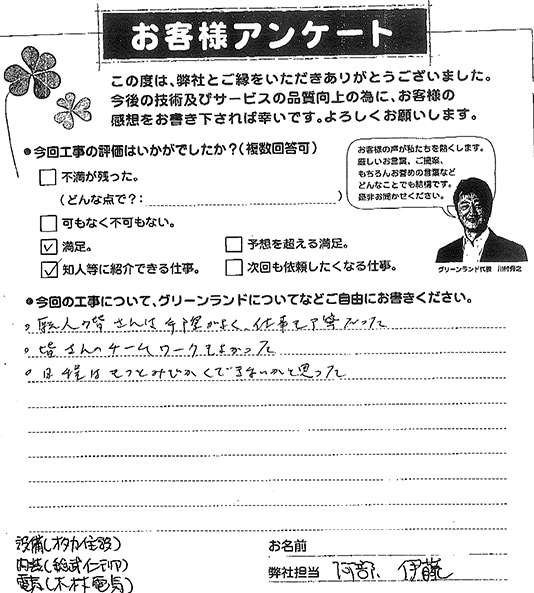 お客様アンケート
この度は、弊社とご縁をいただきありがとうございました。
今後の技術及びサービスの品質向上の為に、お客様の
感想をお書き下されば幸いです。よろしくお願いします。
●今回工事の評価はいかがでしたか？（複数回答可）
不満が残った。
（どんな点で？：　）
可もなく不可もない。
満足。
予想を超える満足。
知人等に紹介できる仕事。
次回も依頼したくなる仕事。
お客様の声が私たちを熱くします。
厳しいお言葉、ご提案、
もちろんお誉めの言葉など
どんなことでも結構です。
是非お聞かせください。
グリーンランド代表
●今回の工事について、グリーンランドについてなどご自由にお書きください。
。職人の皆さんは手際がよく、仕事も丁寧だった
。皆さんのチームワークもよかった
。日程はもっとみじかくできないかと思った
設備(オタカ住設)
内装(インテリア)
電気(木林電気)
お名前
弊社担当 阿部、伊藤